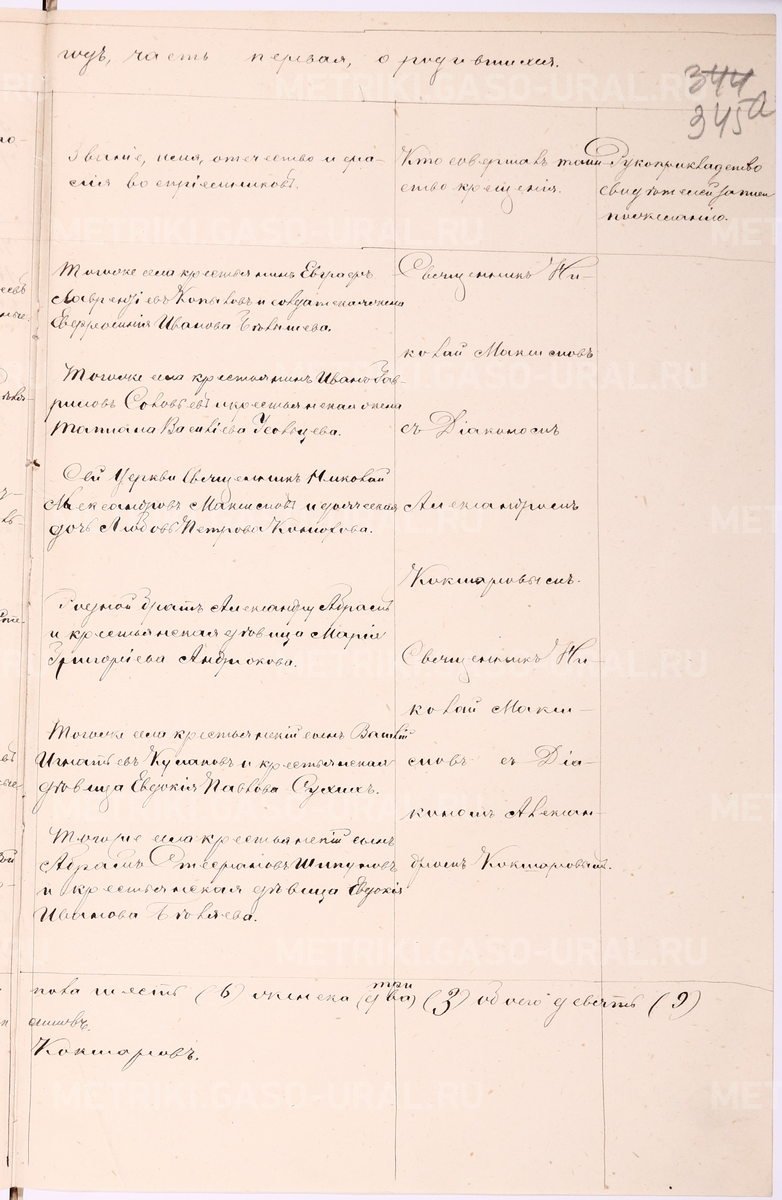 годъ, часть первая, о родившихся.
344
345а
Званіе, имя, отечество и фами-
лія воспріемниковъ.
Кто совершалъ таин-
ство крещенія.
Рукоприкладство
свидѣтелей записи
по желанію.
Тогоже села крестьянинъ Евграфъ
Лаврентіевъ Копыловъ и солдатская жена
Евфросинія Иванова
Тогоже села крестьянинъ Иванъ Гав-
риловъ Соловьевъ и крестьянская жена
Татіана Василіева
Сей Церкви Священникъ Николай
Александровъ Максимовъ и
дочь Любовь Петрова Коновалова.
Родной братъ Александръ
и крестьянская дѣвица Марія
Григоріева Андрюкова.
Тогоже села крестьянскій сынъ Василій
Игнатьевъ Кулаковъ и крестьянская
дѣвица Евдокія Павлова Сухихъ.
Тогоже села крестьянскій сынъ
Абрамъ Стефановъ Шипуновъ
и крестьянская дѣвица Евдокія
Иванова Бѣляева.
Священникъ Ни-
колай Максимовъ
съ Діакономъ
Александромъ
Кокшаровымъ.
Священникъ Ни-
колай Макси-
мовъ съ Діа-
кономъ Алексан-
дромъ Кокшаровымъ.
пола шесть (6) женска (два) три (3) обоего девять (9)
Кокшаровъ.
METRIKI.GASO-URAL.RU